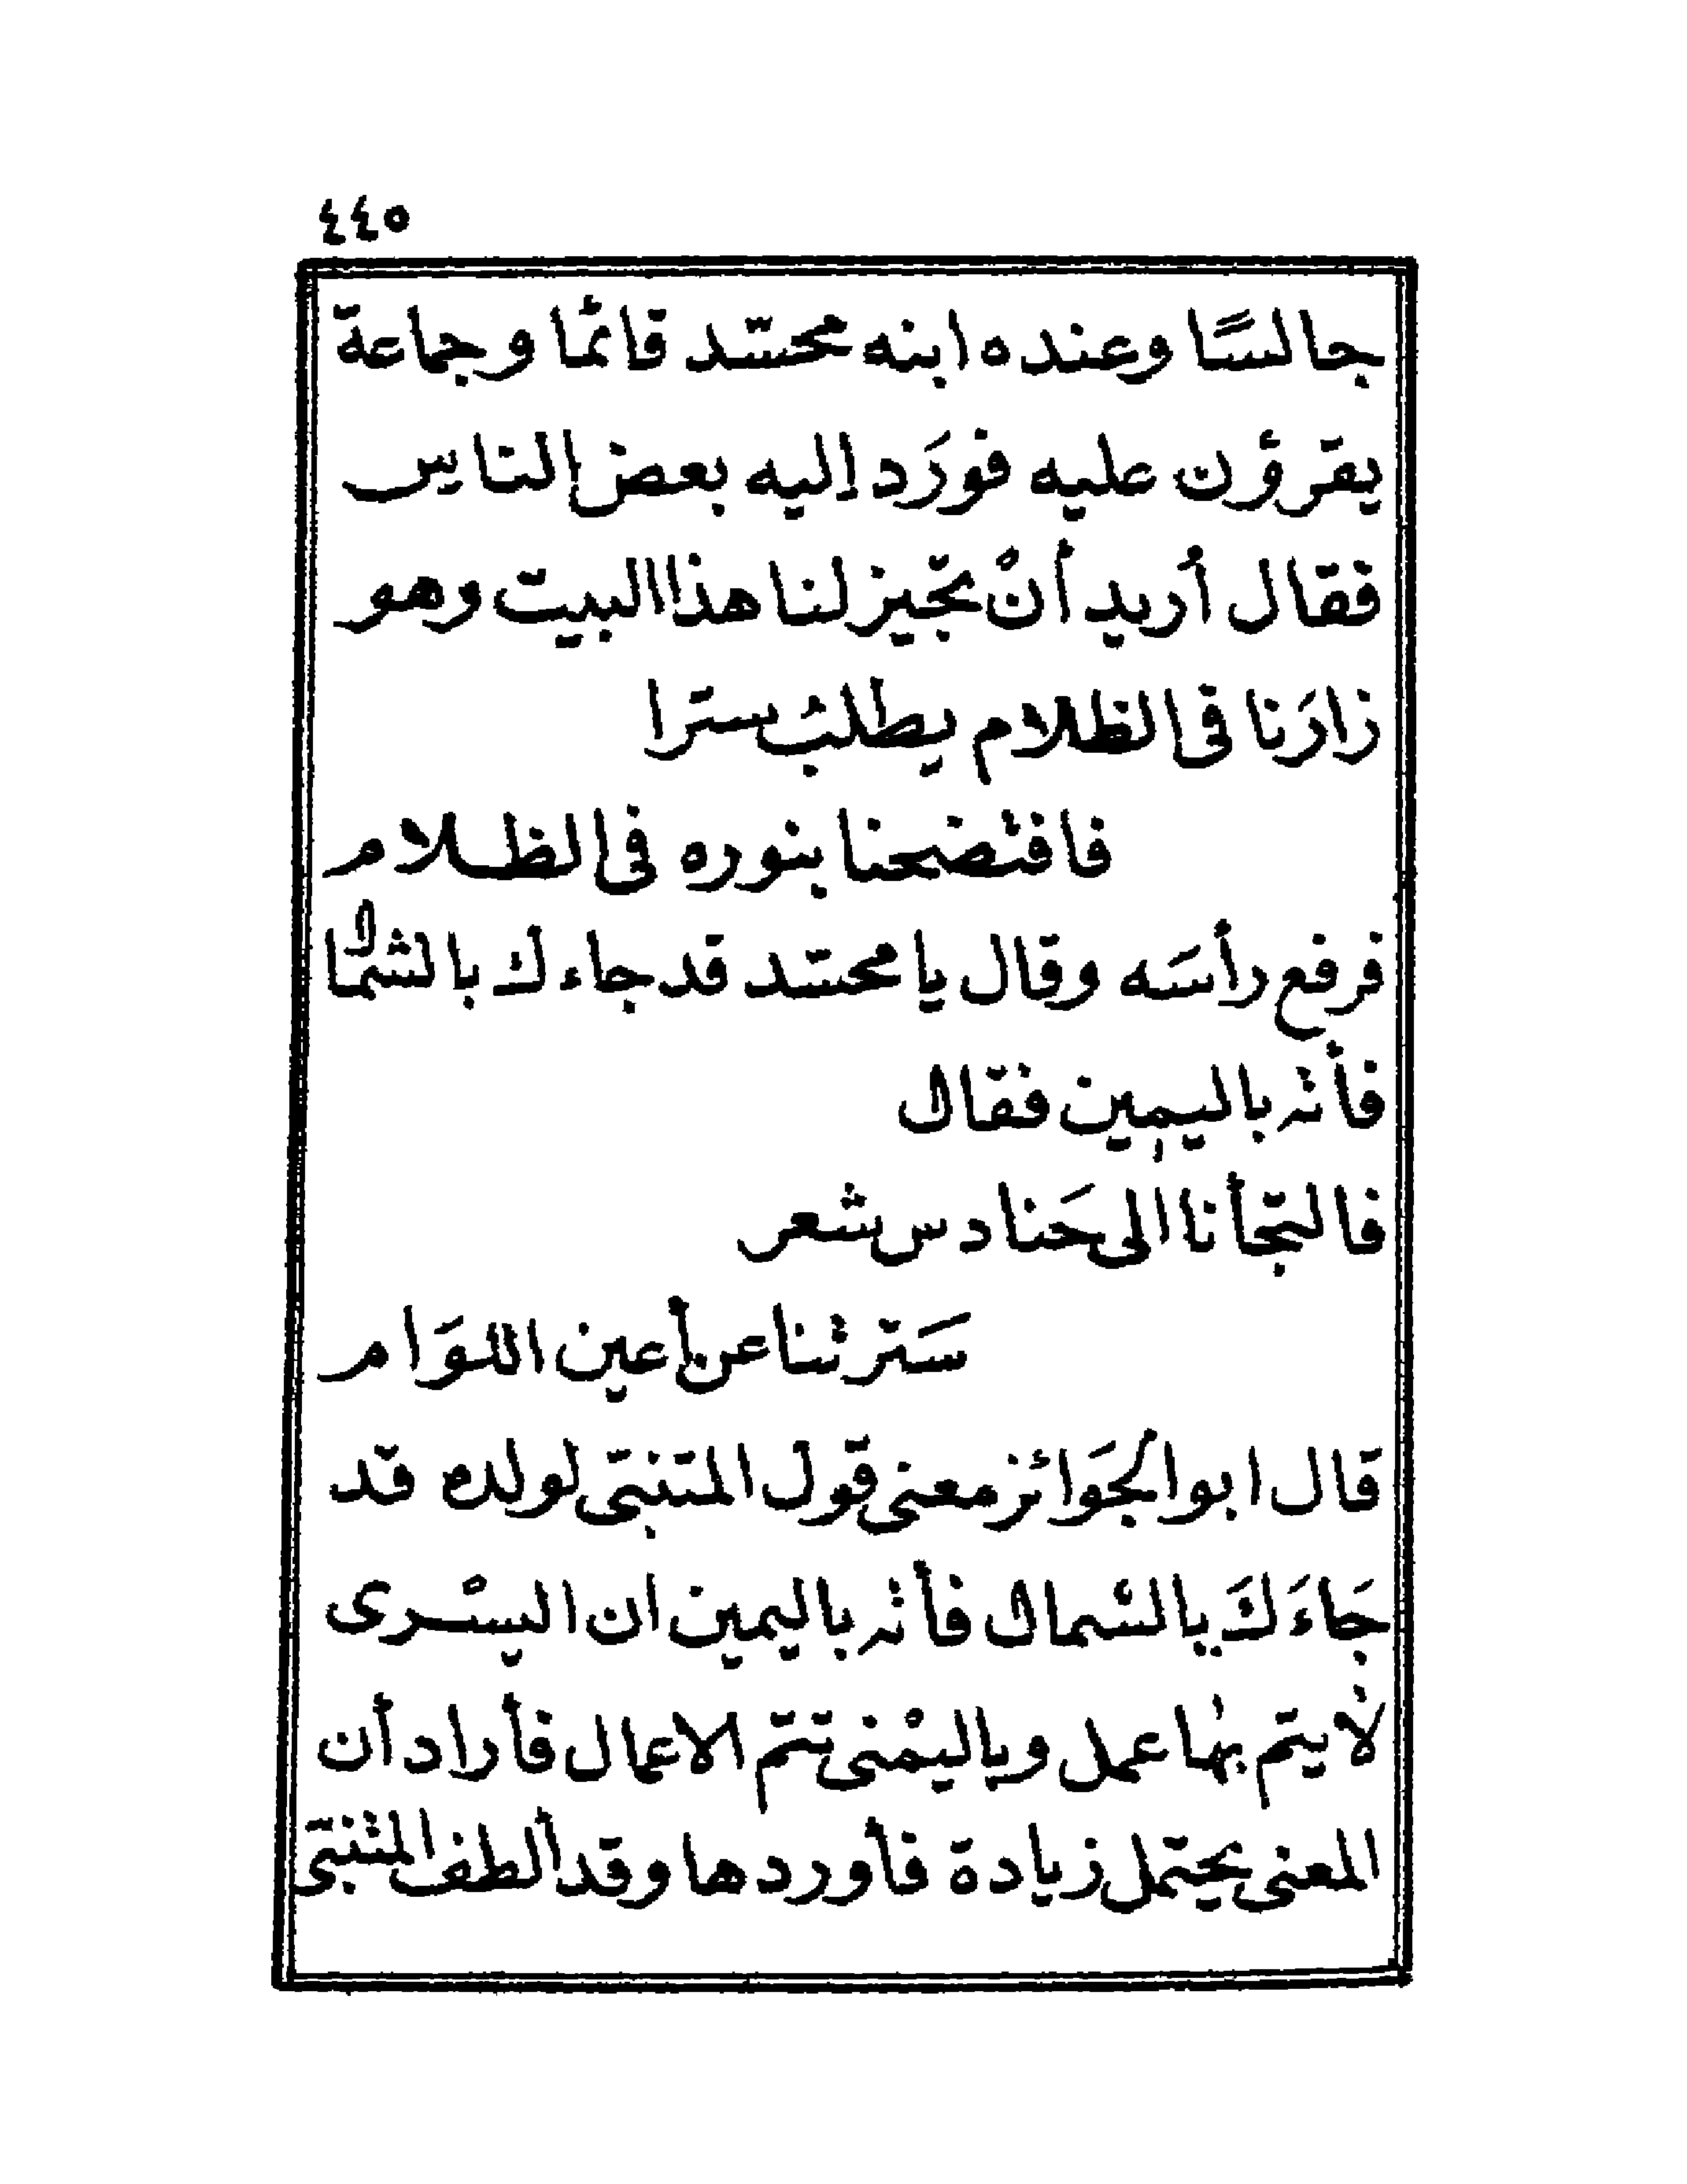 ٤٤٥
جالسًا وعنده ابنه محسّد قائمًا وجماعة
يقرؤن عليه فورَد إليه بعض الناس
فقال أُريد أنْ تجيز لنا هذا البيت وهو
زارَنا في الظلام يطلبُ سترا
فافتضحنا بنوره في الظلام
فرفع رأسَه وقال يا محسّد قد جاءك بالشمال
فأته باليمين فقال
فالتجأنا الى حَنادس شعر
سَترتنا عن أعين اللوَام
قال ابو الجَوائز معنى قول المتنبّى لولده قد
جَاءَكَ بالشمال فأته باليمين ان اليسْرى
لا يتم بها عمل وباليمْنى تتم الاعمال فأراد أن
المعنى يحتمل زيادة فأوردها وقد ألطف المتنبّى